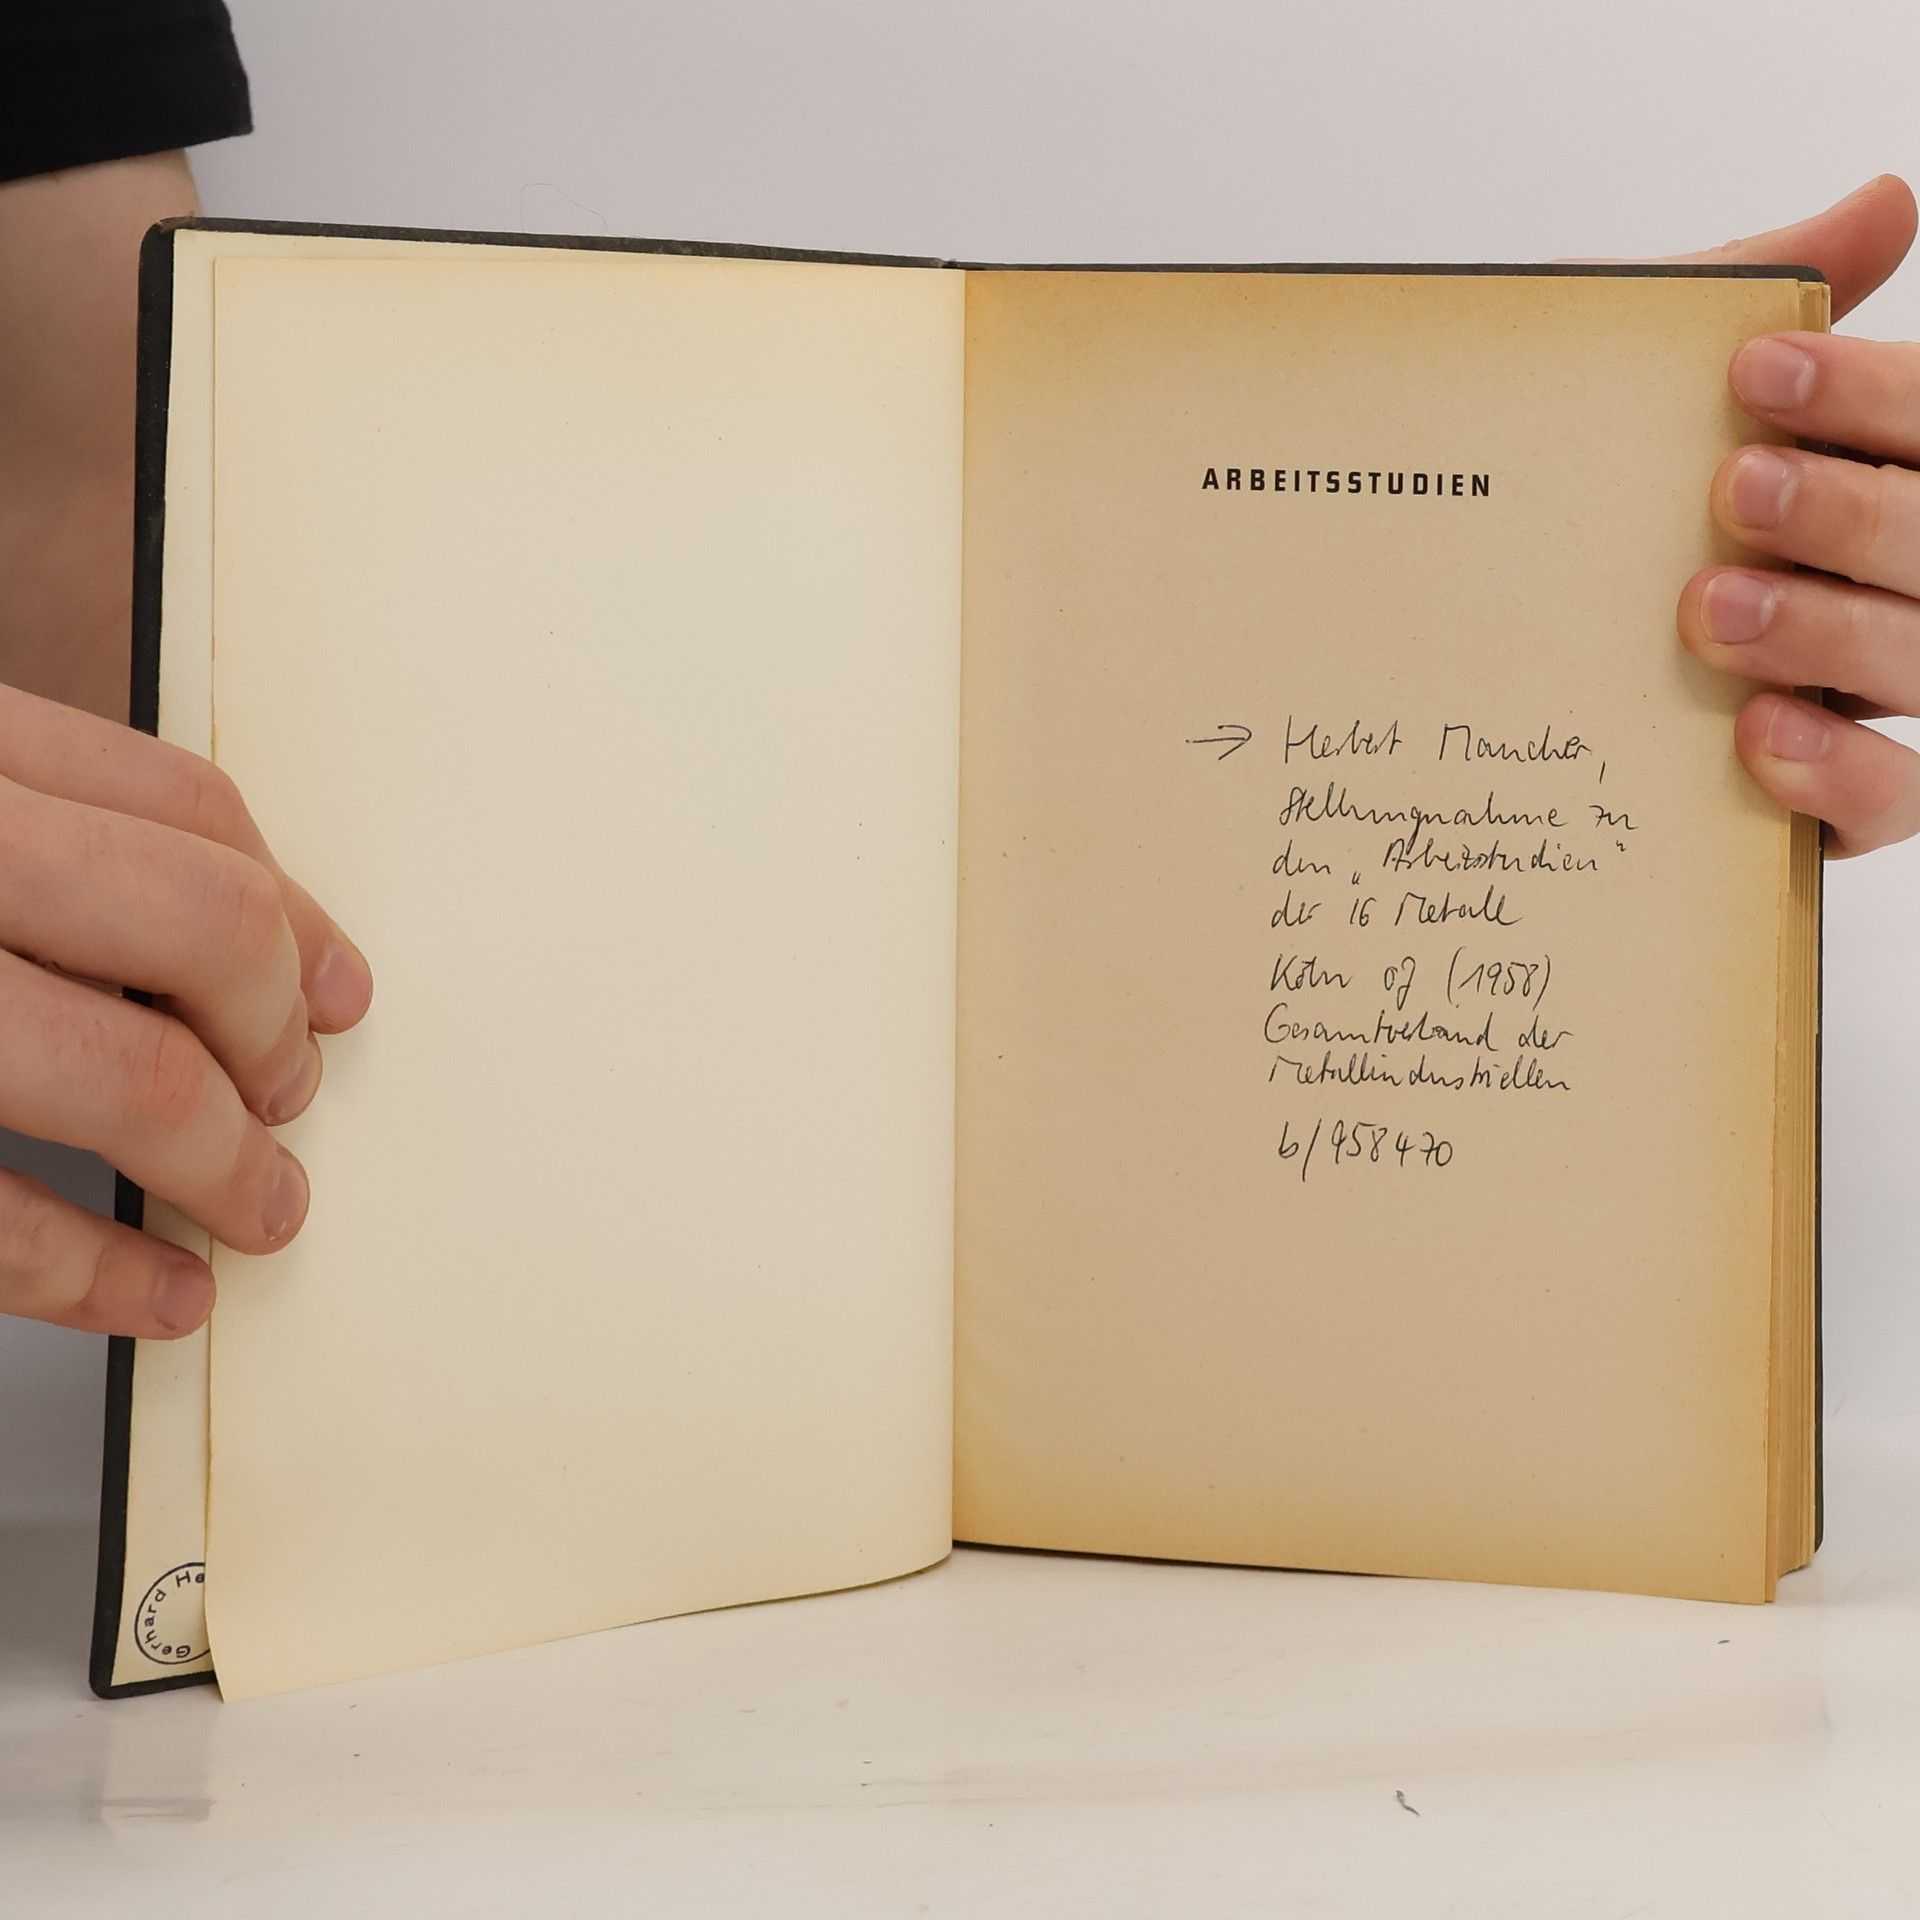 ARBEITSSTUDIEN
→ Herbert
Stellungnahme zu
den „Arbeitsstudien“
der IG Metall
Köln oJ (1958)
Gesamtverband der
Metallindustriellen
b/958470
Gerhard He